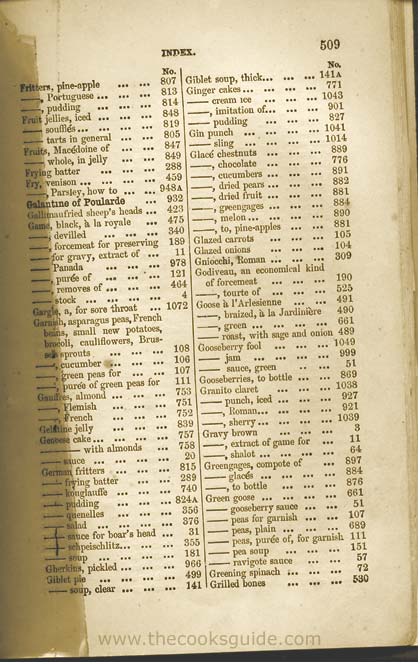 INDEX. 509
No.
Fritters, pine-apple ... ... 807
——, Portuguese ... ... ... 813
——, pudding ... ... ... 814
Fruit jellies, iced ... ... ... 848
—— soufflés ... ... ... ... 819
—— tarts in general ... ... 805
Fruits, Macédoine of ... ... 847
——, whole, in jelly ... ... 849
Frying batter ... ... ... 288
Fry, venison ... ... ... ... 459
——, Parsley, how to ... ... 948A
Galantine of Poularde ... 932
Gallimaufried sheep's heads ... 423
Game, black, à la royale ... 475
——, devilled ... ... ... 340
——, forcemeat for preserving 189
—— for gravy, extract of ... 11
—— Panada ... ... ... 978
——, purée of ... ... ... 121
——, removes of ... ... ... 464
—— stock ... ... ... ... 4
Gargle, a, for sore throat ... 1072
Garnish, asparagus peas, French
beans, small new potatoes,
brocoli, cauliflowers, Brus-
sels sprouts ... ... ... 108
——, cucumber ... ... ... 106
——, green peas for ... ... 107
——, purée of green peas for 111
Gauffres, almond ... ... ... 753
——, Flemish ... ... ... 751
——, French ... ... ... 752
Gelatine jelly ... ... ... 839
Genoese cake ... ... ... ... 757
—— —— with almonds ... 758
—— sauce ... ... ... ... 20
German fritters ... ... ... 815
—— frying batter ... ... 289
—— kouglauffe ... ... ... 740
—— pudding ... ... ... 824A
—— quenelles ... ... ... 356
—— salad ... ... ... ... 376
—— sauce for boar's head ... 31
—— schpeischlitz ... ... ... 355
—— soup ... ... ... ... 181
Gherkins, pickled ... ... ... 966
Giblet pie ... ... ... ... 499
—— soup, clear ... ... ... 141
No.
Giblet soup, thick ... ... ... 141A
Ginger cakes ... ... ... ... 771
—— cream ice ... ... ... 1043
——, imitation of ... ... ... 901
—— pudding ... ... ... 827
Gin punch ... ... ... ... 1041
—— sling ... ... ... ... 1014
Glacé chestnuts ... ... ... 889
——, chocolate ... ... ... 776
——, cucumbers ... ... ... 891
——, dried pears ... ... ... 882
——, dried fruit ... ... ... 881
——, greengages ... ... ... 884
——, melon ... ... ... ... 890
——, to, pine-apples ... ... 881
Glazed carrots ... ... ... 105
Glazed onions ... ... ... 104
Gniocchi, Roman ... ... ... 309
Godiveau, an economical kind
of forcemeat ... ... ... 190
——, tourte of ... ... ... 525
Goose à l'Arlesienne ... ... 491
——, braized, à la Jardinière 490
——, green ... ... ... ... 661
—— roast, with sage and onion 489
Gooseberry fool ... ... ... 1049
—— jam ... ... ... ... 999
—— sauce, green ... ... 51
Gooseberries, to bottle ... ... 869
Granito claret ... ... ... 1038
—— punch, iced ... ... ... 927
——, Roman ... ... ... ... 921
——, sherry ... ... ... ... 1039
Gravy brown ... ... ... 3
——, extract of game for ... 11
——, shalot ... ... ... ... 64
Greengages, compote of ... 897
—— glacés ... ... ... ... 884
——, to bottle ... ... ... 876
Green goose ... ... ... ... 661
—— gooseberry sauce ... ... 51
—— peas for garnish ... ... 107
—— peas, plain ... ... ... 689
—— peas, purée of, for garnish 111
—— pea soup ... ... ... 151
—— ravigote sauce ... ... 57
Greening spinach ... ... ... 72
Grilled bones ... ... ... 530
www.thecooksguide.com